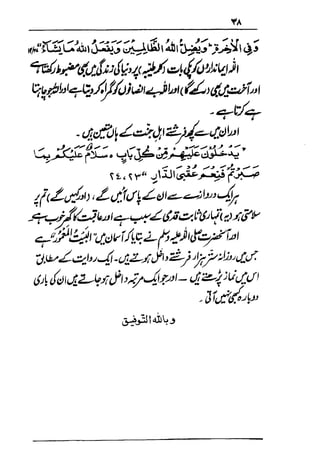 ۳۸
وَفِي الْاٰخِرَةِ ۚ وَيُضِلُّ اللّٰهُ الظّٰلِمِيْنَ وَيَفْعَلُ اللّٰهُ مَا يَشَآءُ
اللہ ایمانداروں کو پکی بات (کلمہ طیبہ) پر دنیا کی زندگی میں بھی مضبوط رکھتا ہے
اور آخرت میں بھی (رکھے گا) اور اللہ بے انصافوں کو گمراہ کر دیتا ہے اور اللہ جو چاہتا
ہے کرتا ہے۔
اور ان میں سے کچھ فرشتے اہل جنت کے ہاں متعین ہیں۔
يَدْخُلُوْنَ عَلَيْهِمْ مِّنْ كُلِّ بَابٍ ۔ سَلَامٌ عَلَيْكُمْ بِمَا
صَبَرْتُمْ فَنِعْمَ عُقْبَى الدَّارِ ۲۳، ۲۴
ہر ایک دروازے سے ان کے پاس آئیں گے، (اور کہیں گے) تم پر
سلامتی ہو (یہ) تمہاری ثابت قدمی کے سبب ہے اور عاقبت کا گھر خوب ہے
اور آنحضرت صلی اللہ علیہ وسلم نے بتایا کہ آسمان میں "الْبَيْتُ الْمَعْمُوْرُ" ہے
جس میں روزانہ ستر ہزار فرشتے داخل ہوتے ہیں۔ ایک روایت کے مطابق
اس میں نماز پڑھتے ہیں – اور جو ایک مرتبہ داخل ہو جاتے ہیں ان کی باری
دوبارہ کبھی نہیں آتی۔
وباللہ التوفیق